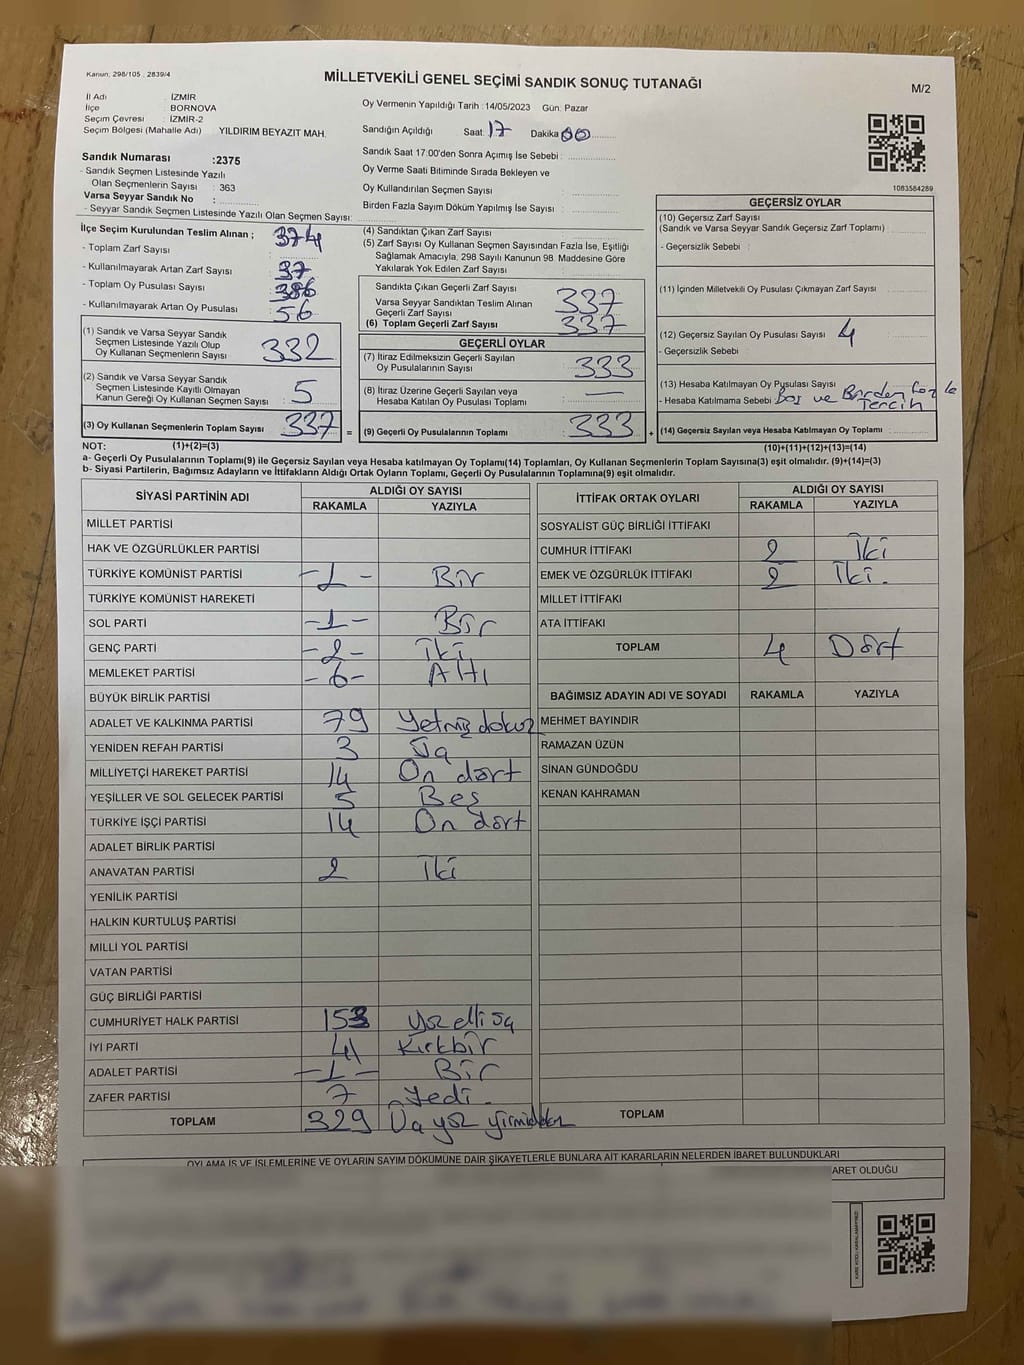 Kanun: 298/105 , 2839/4
MİLLETVEKİLİ GENEL SEÇİMİ SANDIK SONUÇ TUTANAĞI
M/2
İl Adı : İZMİR
İlçe : BORNOVA
Seçim Çevresi : İZMİR-2
Seçim Bölgesi (Mahalle Adı) YILDIRIM BEYAZIT MAH.
Oy Vermenin Yapıldığı Tarih : 14/05/2023 Gün: Pazar
Sandığın Açıldığı Saat: 17 Dakika 00
Sandık Saat 17:00'den Sonra Açımış İse Sebebi :
Oy Verme Saati Bitiminde Sırada Bekleyen ve
Oy Kullandırılan Seçmen Sayısı :
Birden Fazla Sayım Döküm Yapılmış İse Sayısı :
1083584289
Sandık Numarası :2375
- Sandık Seçmen Listesinde Yazılı
Olan Seçmenlerin Sayısı : 363
Varsa Seyyar Sandık No :
- Seyyar Sandık Seçmen Listesinde Yazılı Olan Seçmen Sayısı:
İlçe Seçim Kurulundan Teslim Alınan ;
- Toplam Zarf Sayısı : 374
- Kullanılmayarak Artan Zarf Sayısı : 37
- Toplam Oy Pusulası Sayısı : 386
- Kullanılmayarak Artan Oy Pusulası : 56
(1) Sandık ve Varsa Seyyar Sandık
Seçmen Listesinde Yazılı Olup
Oy Kullanan Seçmenlerin Sayısı : 332
(2) Sandık ve Varsa Seyyar Sandık
Seçmen Listesinde Kayıtlı Olmayan
Kanun Gereği Oy Kullanan Seçmen Sayısı : 5
(3) Oy Kullanan Seçmenlerin Toplam Sayısı : 337 =
(4) Sandıktan Çıkan Zarf Sayısı :
(5) Zarf Sayısı Oy Kullanan Seçmen Sayısından Fazla İse, Eşitliği
Sağlamak Amacıyla, 298 Sayılı Kanunun 98. Maddesine Göre
Yakılarak Yok Edilen Zarf Sayısı :
Sandıkta Çıkan Geçerli Zarf Sayısı : 337
Varsa Seyyar Sandıktan Teslim Alınan
Geçerli Zarf Sayısı :
(6) Toplam Geçerli Zarf Sayısı : 337
GEÇERLİ OYLAR
(7) İtiraz Edilmeksizin Geçerli Sayılan
Oy Pusulalarının Sayısı : 333
(8) İtiraz Üzerine Geçerli Sayılan veya
Hesaba Katılan Oy Pusulası Toplamı : —
(9) Geçerli Oy Pusulalarının Toplamı : 333 +
GEÇERSİZ OYLAR
(10) Geçersiz Zarf Sayısı
(Sandık ve Varsa Seyyar Sandık Geçersiz Zarf Toplamı) :
- Geçersizlik Sebebi :
(11) İçinden Milletvekili Oy Pusulası Çıkmayan Zarf Sayısı :
(12) Geçersiz Sayılan Oy Pusulası Sayısı : 4
- Geçersizlik Sebebi :
(13) Hesaba Katılmayan Oy Pusulası Sayısı :
- Hesaba Katılmama Sebebi : Boş ve Birden fazla
Tercih
(14) Geçersiz Sayılan veya Hesaba Katılmayan Oy Toplamı :
NOT: (1)+(2)=(3) (10)+(11)+(12)+(13)=(14)
a- Geçerli Oy Pusulalarının Toplamı(9) ile Geçersiz Sayılan veya Hesaba katılmayan Oy Toplamı(14) Toplamları, Oy Kullanan Seçmenlerin Toplam Sayısına(3) eşit olmalıdır. (9)+(14)=(3)
b- Siyasi Partilerin, Bağımsız Adayların ve İttifakların Aldığı Ortak Oyların Toplamı, Geçerli Oy Pusulalarının Toplamına(9) eşit olmalıdır.
SİYASİ PARTİNİN ADI ALDIĞI OY SAYISI
RAKAMLA YAZIYLA
MİLLET PARTİSİ
HAK VE ÖZGÜRLÜKLER PARTİSİ
TÜRKİYE KOMÜNİST PARTİSİ -1- Bir
TÜRKİYE KOMÜNİST HAREKETİ
SOL PARTİ -1- Bir
GENÇ PARTİ -2- İki
MEMLEKET PARTİSİ -6- Altı
BÜYÜK BİRLİK PARTİSİ
ADALET VE KALKINMA PARTİSİ 79 Yetmiş dokuz
YENİDEN REFAH PARTİSİ 3 Üç
MİLLİYETÇİ HAREKET PARTİSİ 14 On dört
YEŞİLLER VE SOL GELECEK PARTİSİ 5 Beş
TÜRKİYE İŞÇİ PARTİSİ 14 On dört
ADALET BİRLİK PARTİSİ
ANAVATAN PARTİSİ 2 İki
YENİLİK PARTİSİ
HALKIN KURTULUŞ PARTİSİ
MİLLİ YOL PARTİSİ
VATAN PARTİSİ
GÜÇ BİRLİĞİ PARTİSİ
CUMHURİYET HALK PARTİSİ 153 Yüz elli üç
İYİ PARTİ 41 Kırkbir
ADALET PARTİSİ -1- Bir
ZAFER PARTİSİ 7 Yedi.
TOPLAM 329 Üç yüz yirmidokuz
İTTİFAK ORTAK OYLARI ALDIĞI OY SAYISI
RAKAMLA YAZIYLA
SOSYALİST GÜÇ BİRLİĞİ İTTİFAKI
CUMHUR İTTİFAKI 2 İki
EMEK VE ÖZGÜRLÜK İTTİFAKI 2 İki.
MİLLET İTTİFAKI
ATA İTTİFAKI
TOPLAM 4 Dört
BAĞIMSIZ ADAYIN ADI VE SOYADI RAKAMLA YAZIYLA
MEHMET BAYINDIR
RAMAZAN ÜZÜN
SİNAN GÜNDOĞDU
KENAN KAHRAMAN
TOPLAM
OYLAMA İŞ VE İŞLEMLERİNE VE OYLARIN SAYIM DÖKÜMÜNE DAİR ŞİKAYETLERLE BUNLARA AİT KARARLARIN NELERDEN İBARET BULUNDUKLARI
BARET OLDUĞU